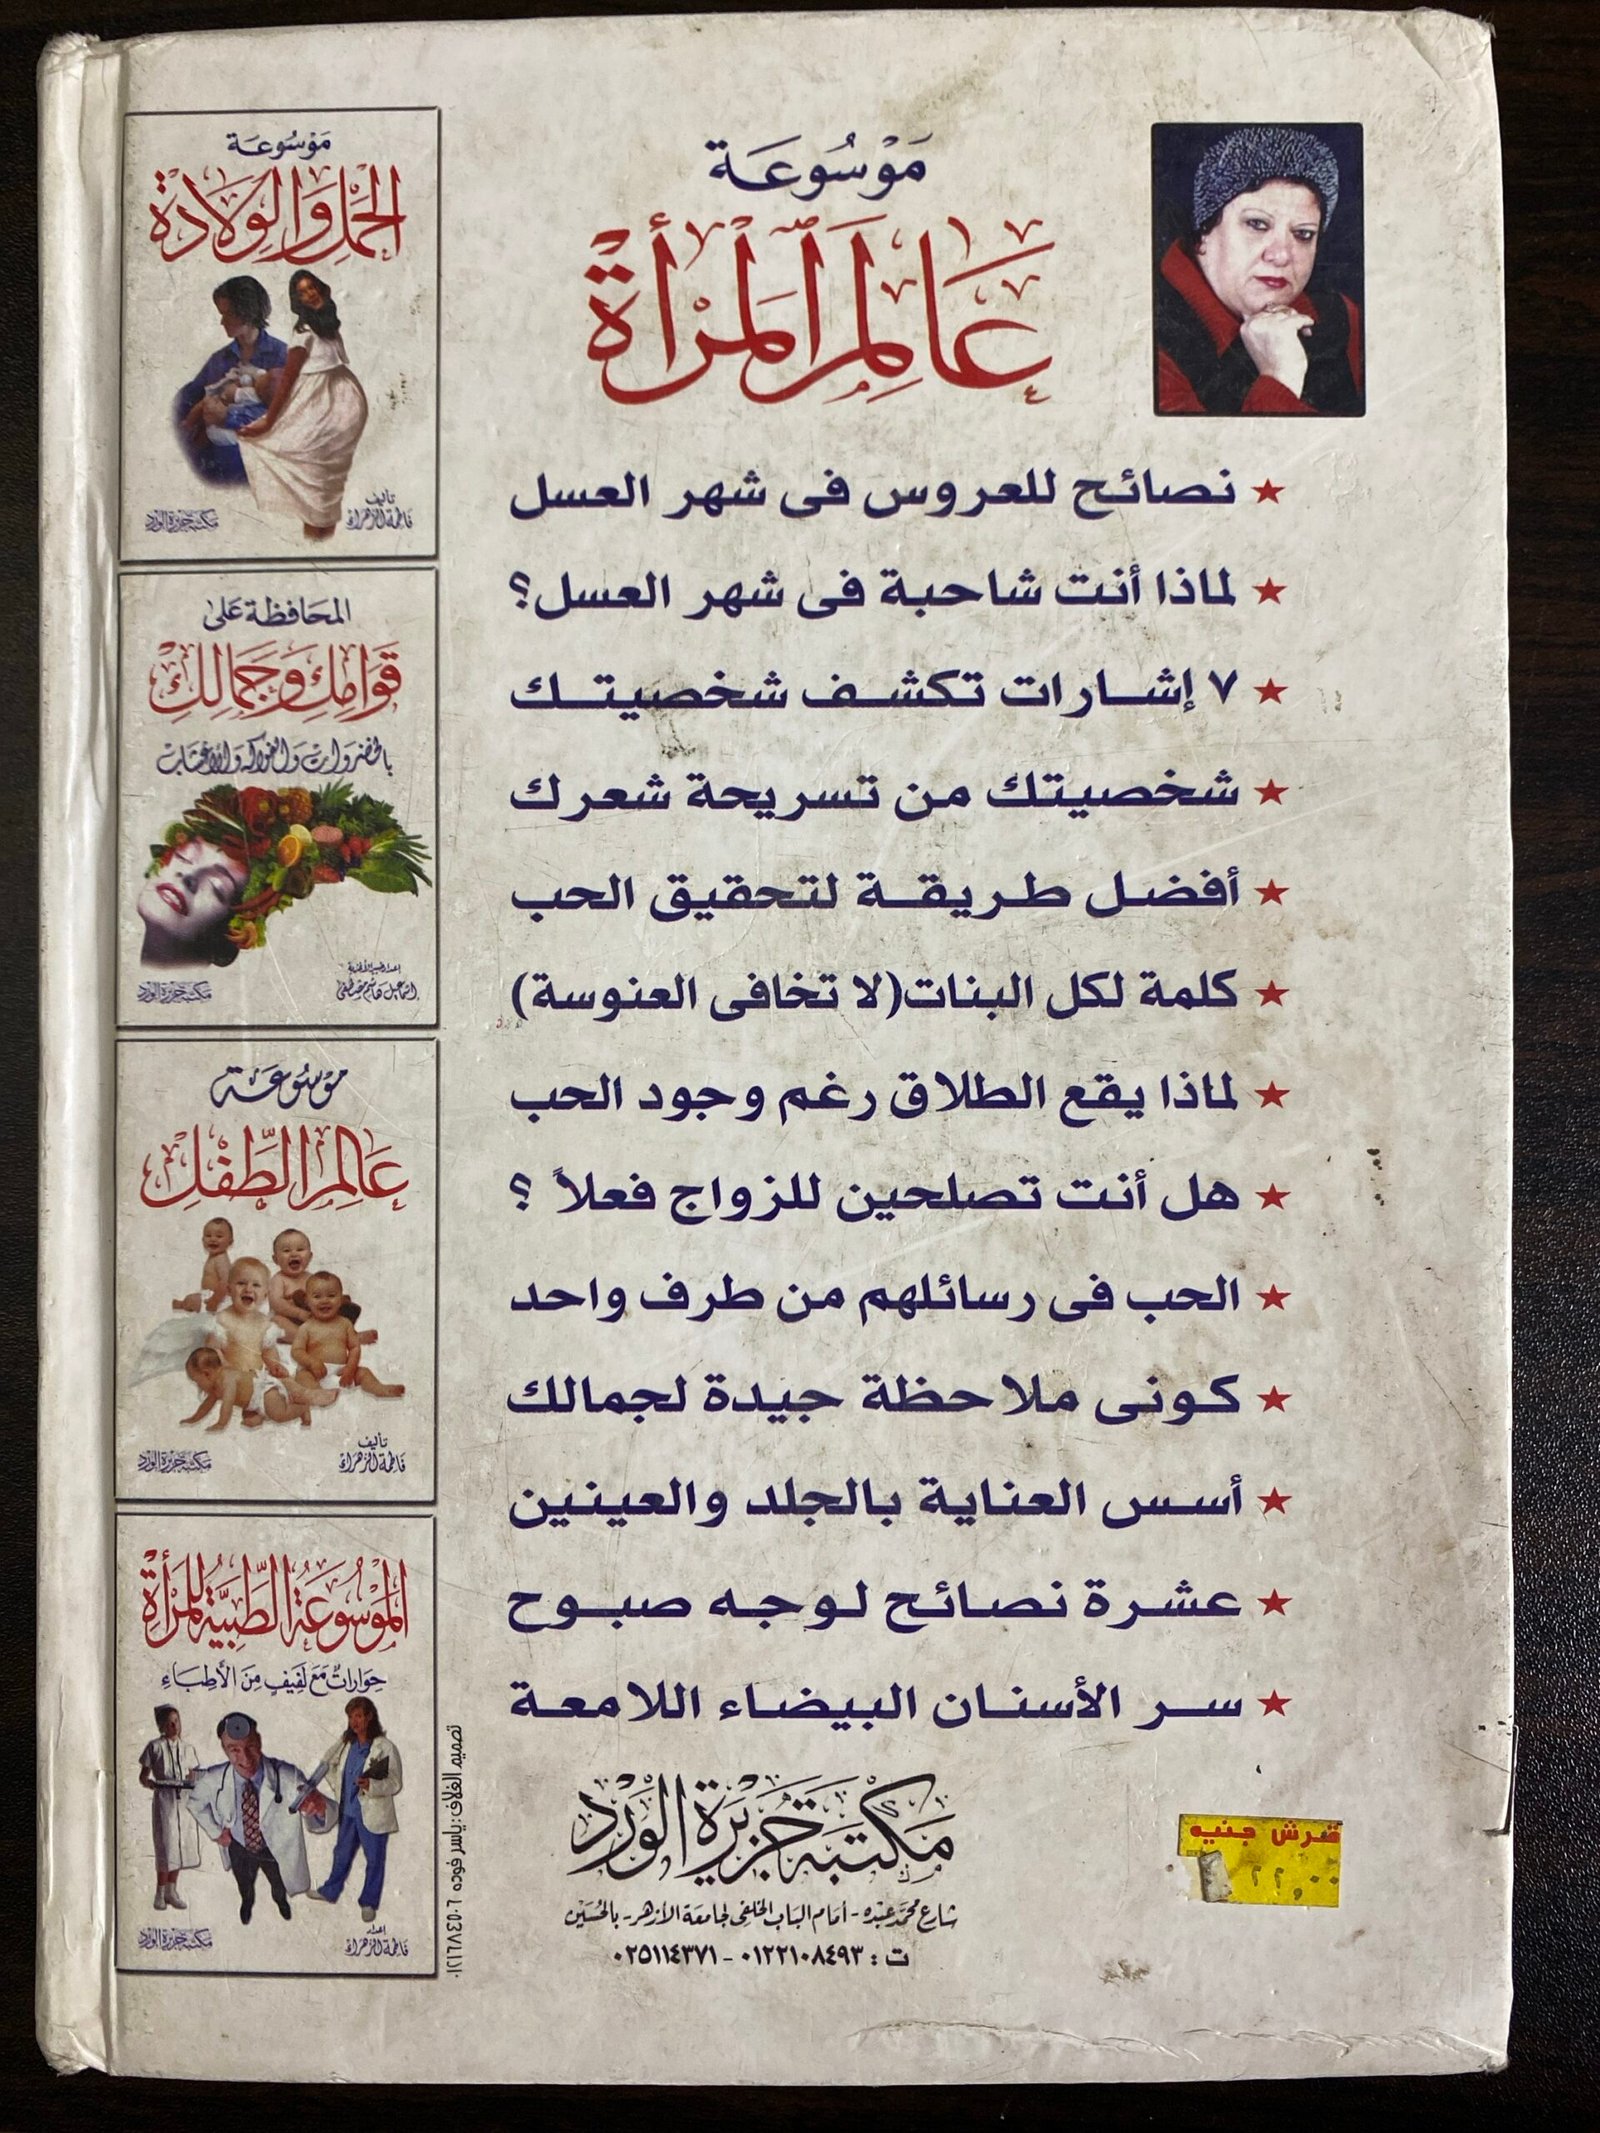 موسوعة
عالم المرأة
★ نصائح للعروس فى شهر العسل
★ لماذا أنت شاحبة فى شهر العسل؟
★ ٧ إشارات تكشف شخصيتك
★ شخصيتك من تسريحة شعرك
★ أفضل طريقة لتحقيق الحب
★ كلمة لكل البنات(لا تخافى العنوسة)
★ لماذا يقع الطلاق رغم وجود الحب
★ هل أنت تصلحين للزواج فعلاً ؟
★ الحب فى رسائلهم من طرف واحد
★ كونى ملاحظة جيدة لجمالك
★ أسس العناية بالجلد والعينين
★ عشرة نصائح لوجه صبوح
★ سر الأسنان البيضاء اللامعة
مكتبة جزيرة الورد
شارع محمد عبده - أمام الباب الخلفى لجامعة الأزهر - بالحسين
ت : ٠١٢٢١٠٨٤٩٣ - ٠٢٥١١٤٣٧١
قرش جنيه
٢٢,٠٠
موسوعة
الحمل والولادة
تأليف
فاطمة الزهراء
مكتبة جزيرة الورد
المحافظة على
قوامك وجمالك
بالخضروات والفواكه والأعشاب
مكتبة جزيرة الورد
موسوعة
عالم الطفل
تأليف
فاطمة الزهراء
مكتبة جزيرة الورد
الموسوعة الطبية للمرأة
حوارات مع لفيف من الأطباء
إعداد
فاطمة الزهراء
مكتبة جزيرة الورد
تصميم الغلاف : ياسر فوده ٠١٢١٦٨٤٥٠٦